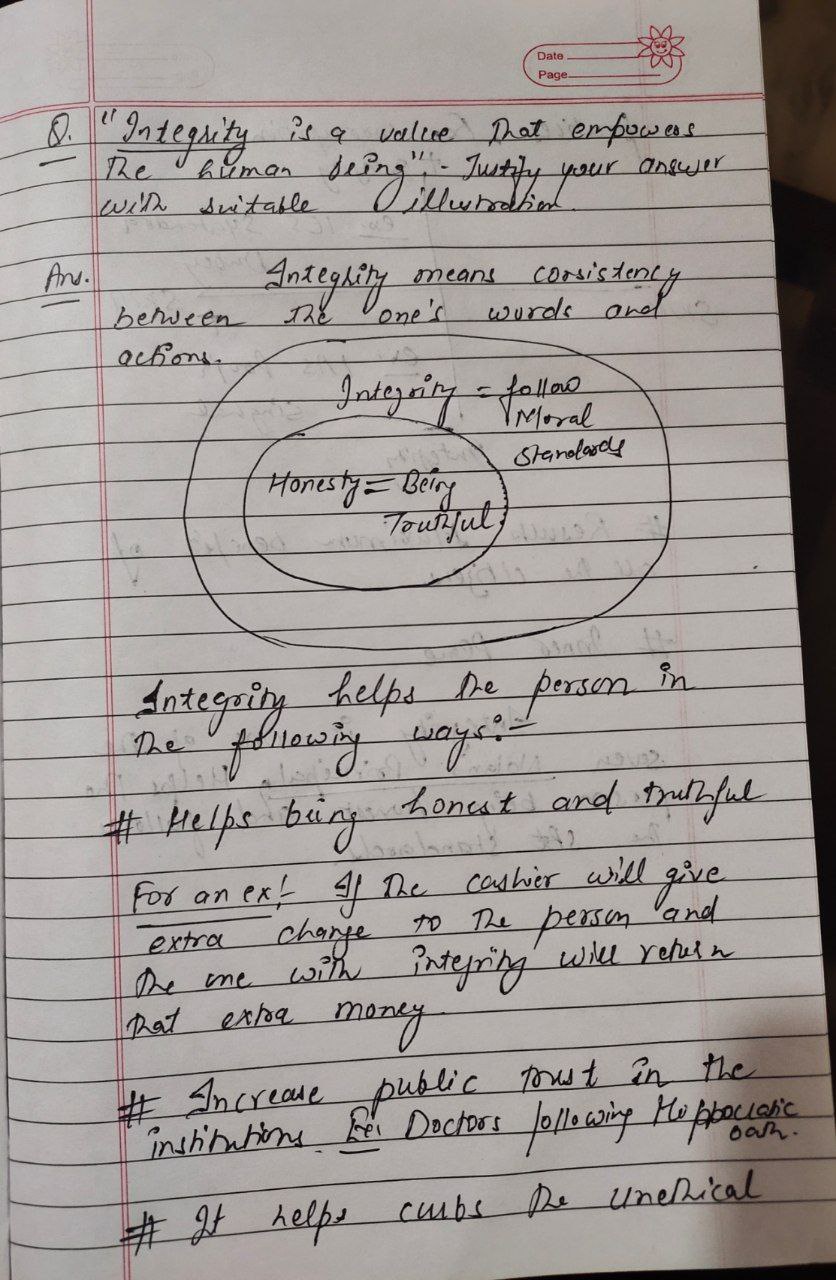 Date
Page
Q. "Integrity is a value that empowers
the human being". - Justify your answer
with suitable illustration.
Ans. Integrity means consistency
between the one's words and
actions.
Integrity = follow
Moral
Standards
Honesty = Being
Truthful
Integrity helps the person in
the following ways:-
# Helps being honest and truthful
For an ex:- If the cashier will give
extra change to the person and
the one with integrity will return
that extra money.
# Increase public trust in the
institutions. Doctors following Hippocratic
oath.
# It helps curbs the unethical